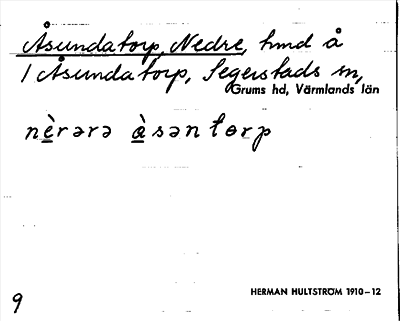 Åsundatorp, Nedre, hmd å
1 Åsundatorp, Segerstads sn,
Grums hd, Värmlands län
nèrərə àsəntɵrp
HERMAN HULTSTRÖM 1910–12
9